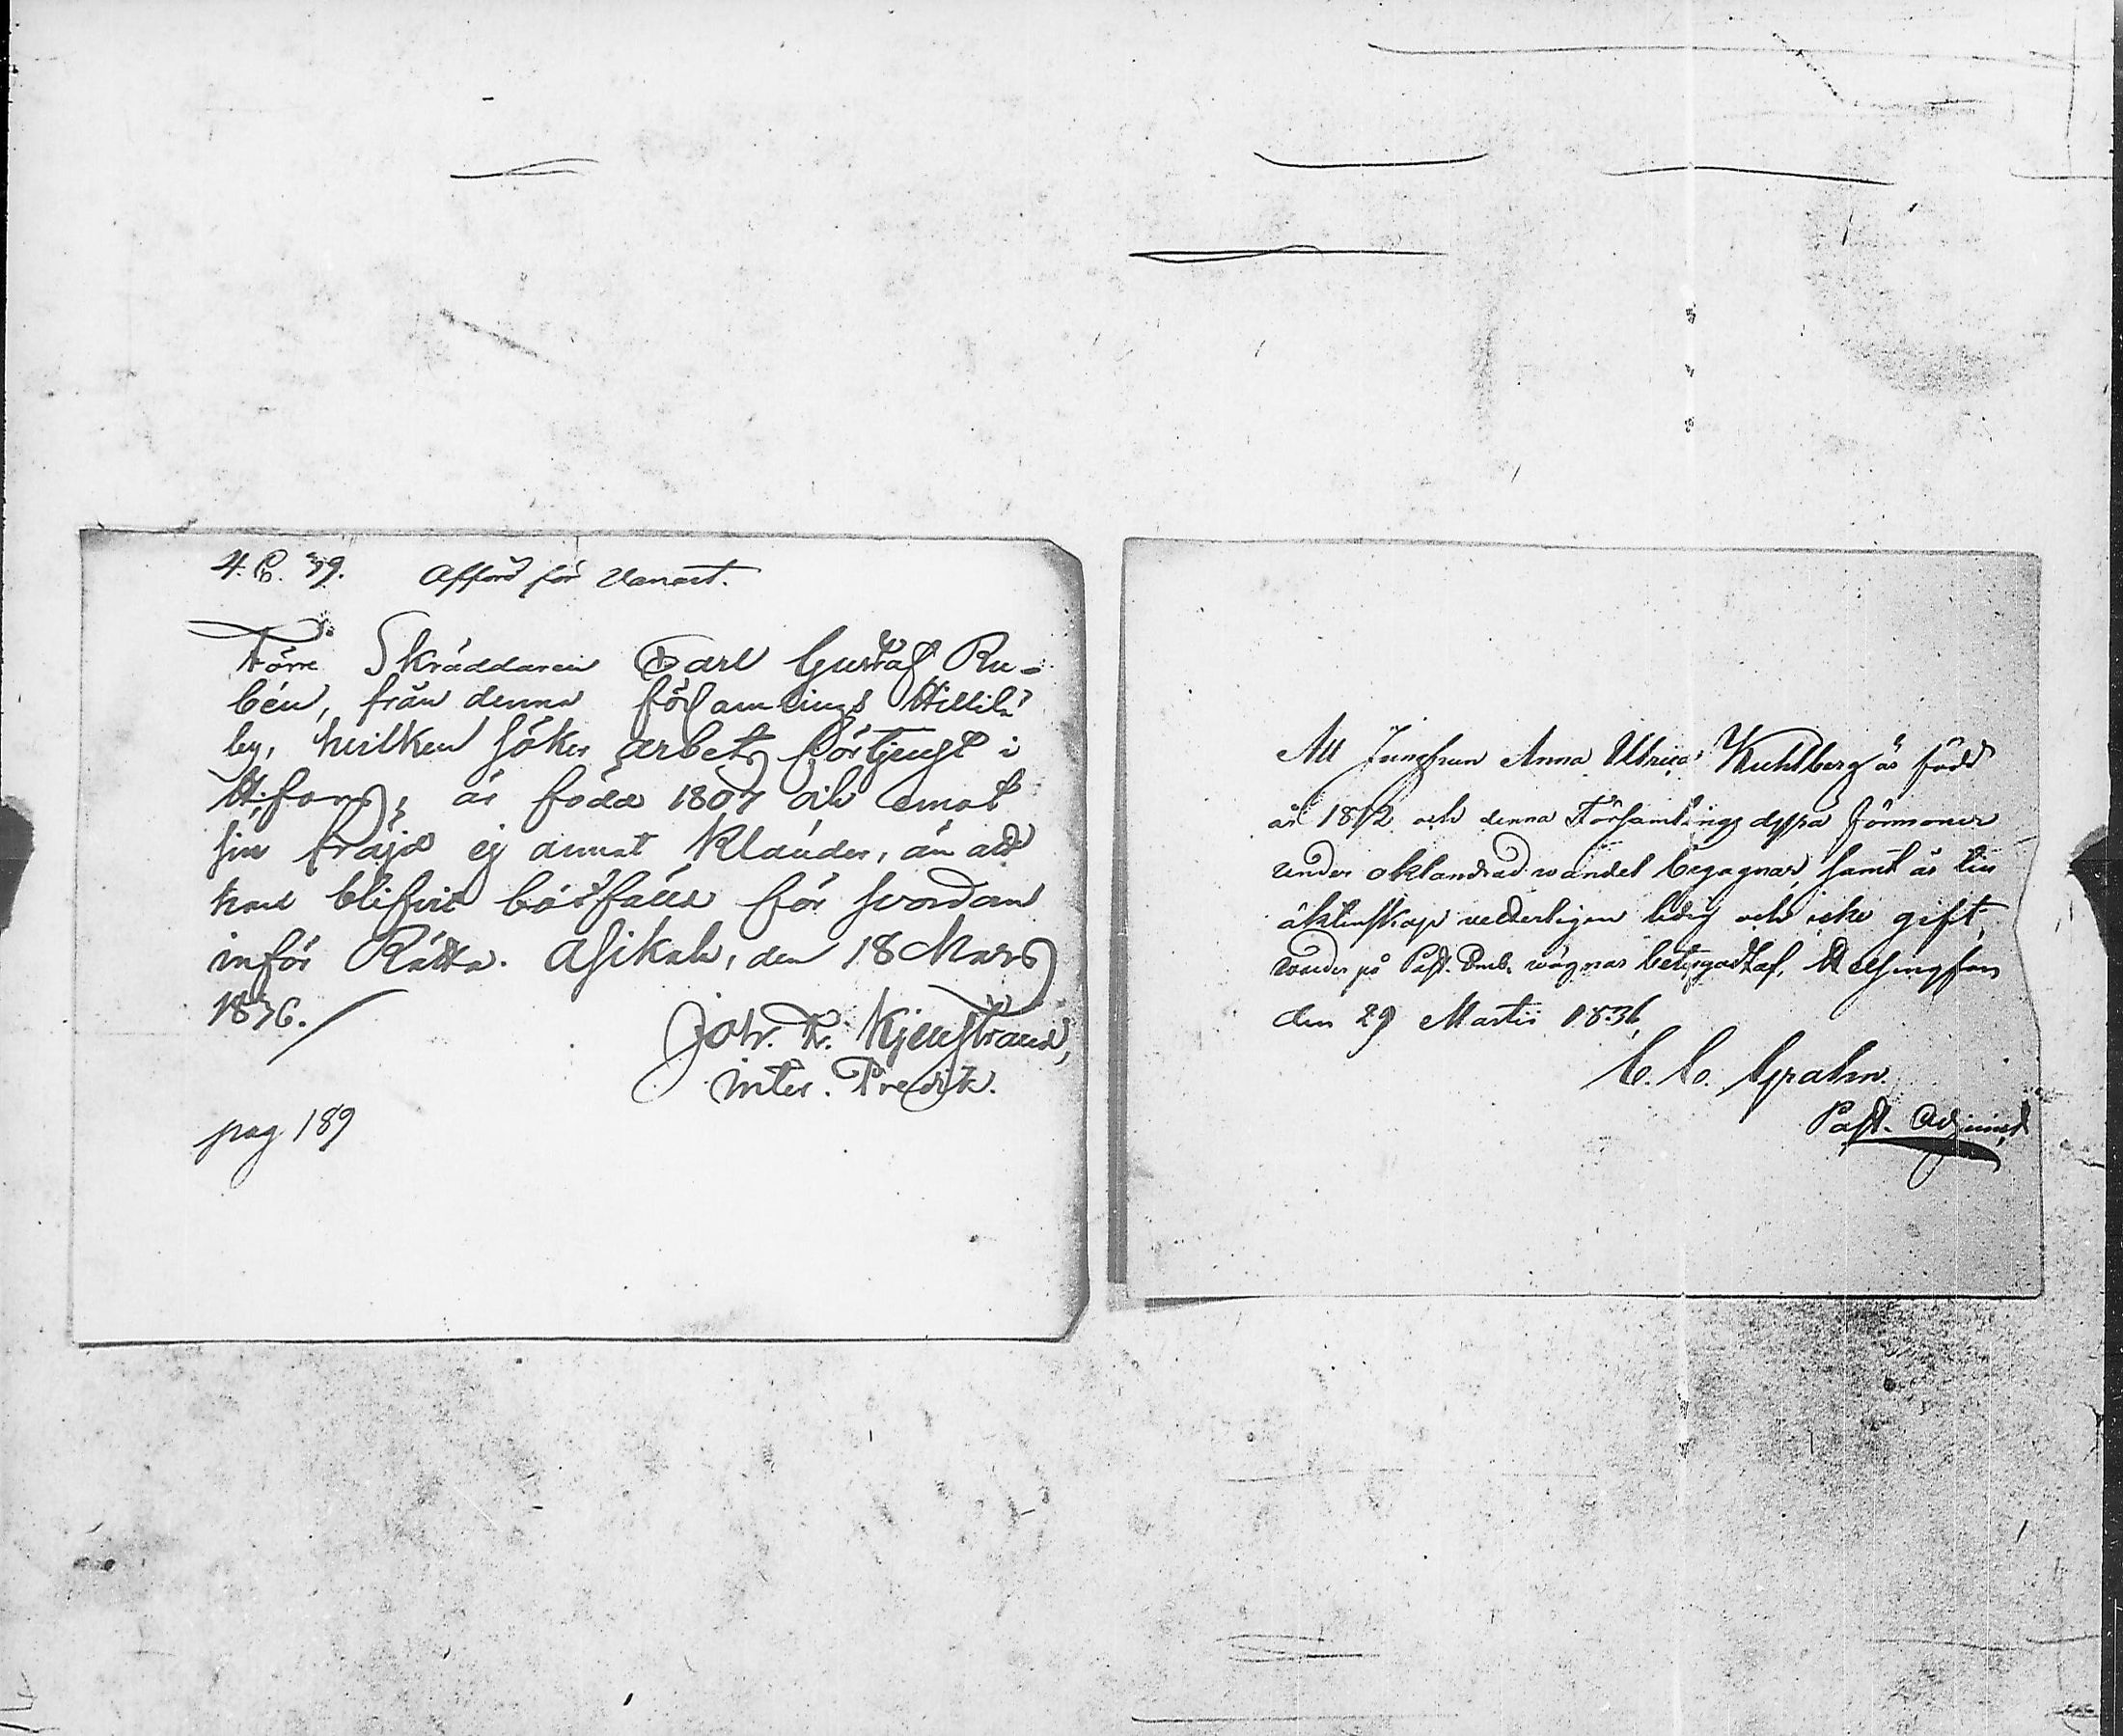 4. C. 39. Afförd för Vanart.
Förre Skräddaren Carl Gustaf Ru-
bén, från denna församlings Hillilä
by, hvilken söker arbets förtjenst i
H:fors, är född 1807 och emot
sin fräjd ej annat klander, än att
han blifvit botfälld för svordom
inför Rätta. Asikala, den 18 Mars
1836.
Joh. F. Kjellstrand,
inter. Predik.
pag 189
Att Jungfrun Anna Ulrica Kuhlberg är född
år 1812 och denna Församlings förmoner
under oklandrad wandel begagnar, samt är till
äktenskap wederligen ledig och icke gift,
warder på Past. Emb. wägnar betygadt af, Helsingfors
den 29 Martii 1836,
C. C. Grahn.
Past. Adjunct